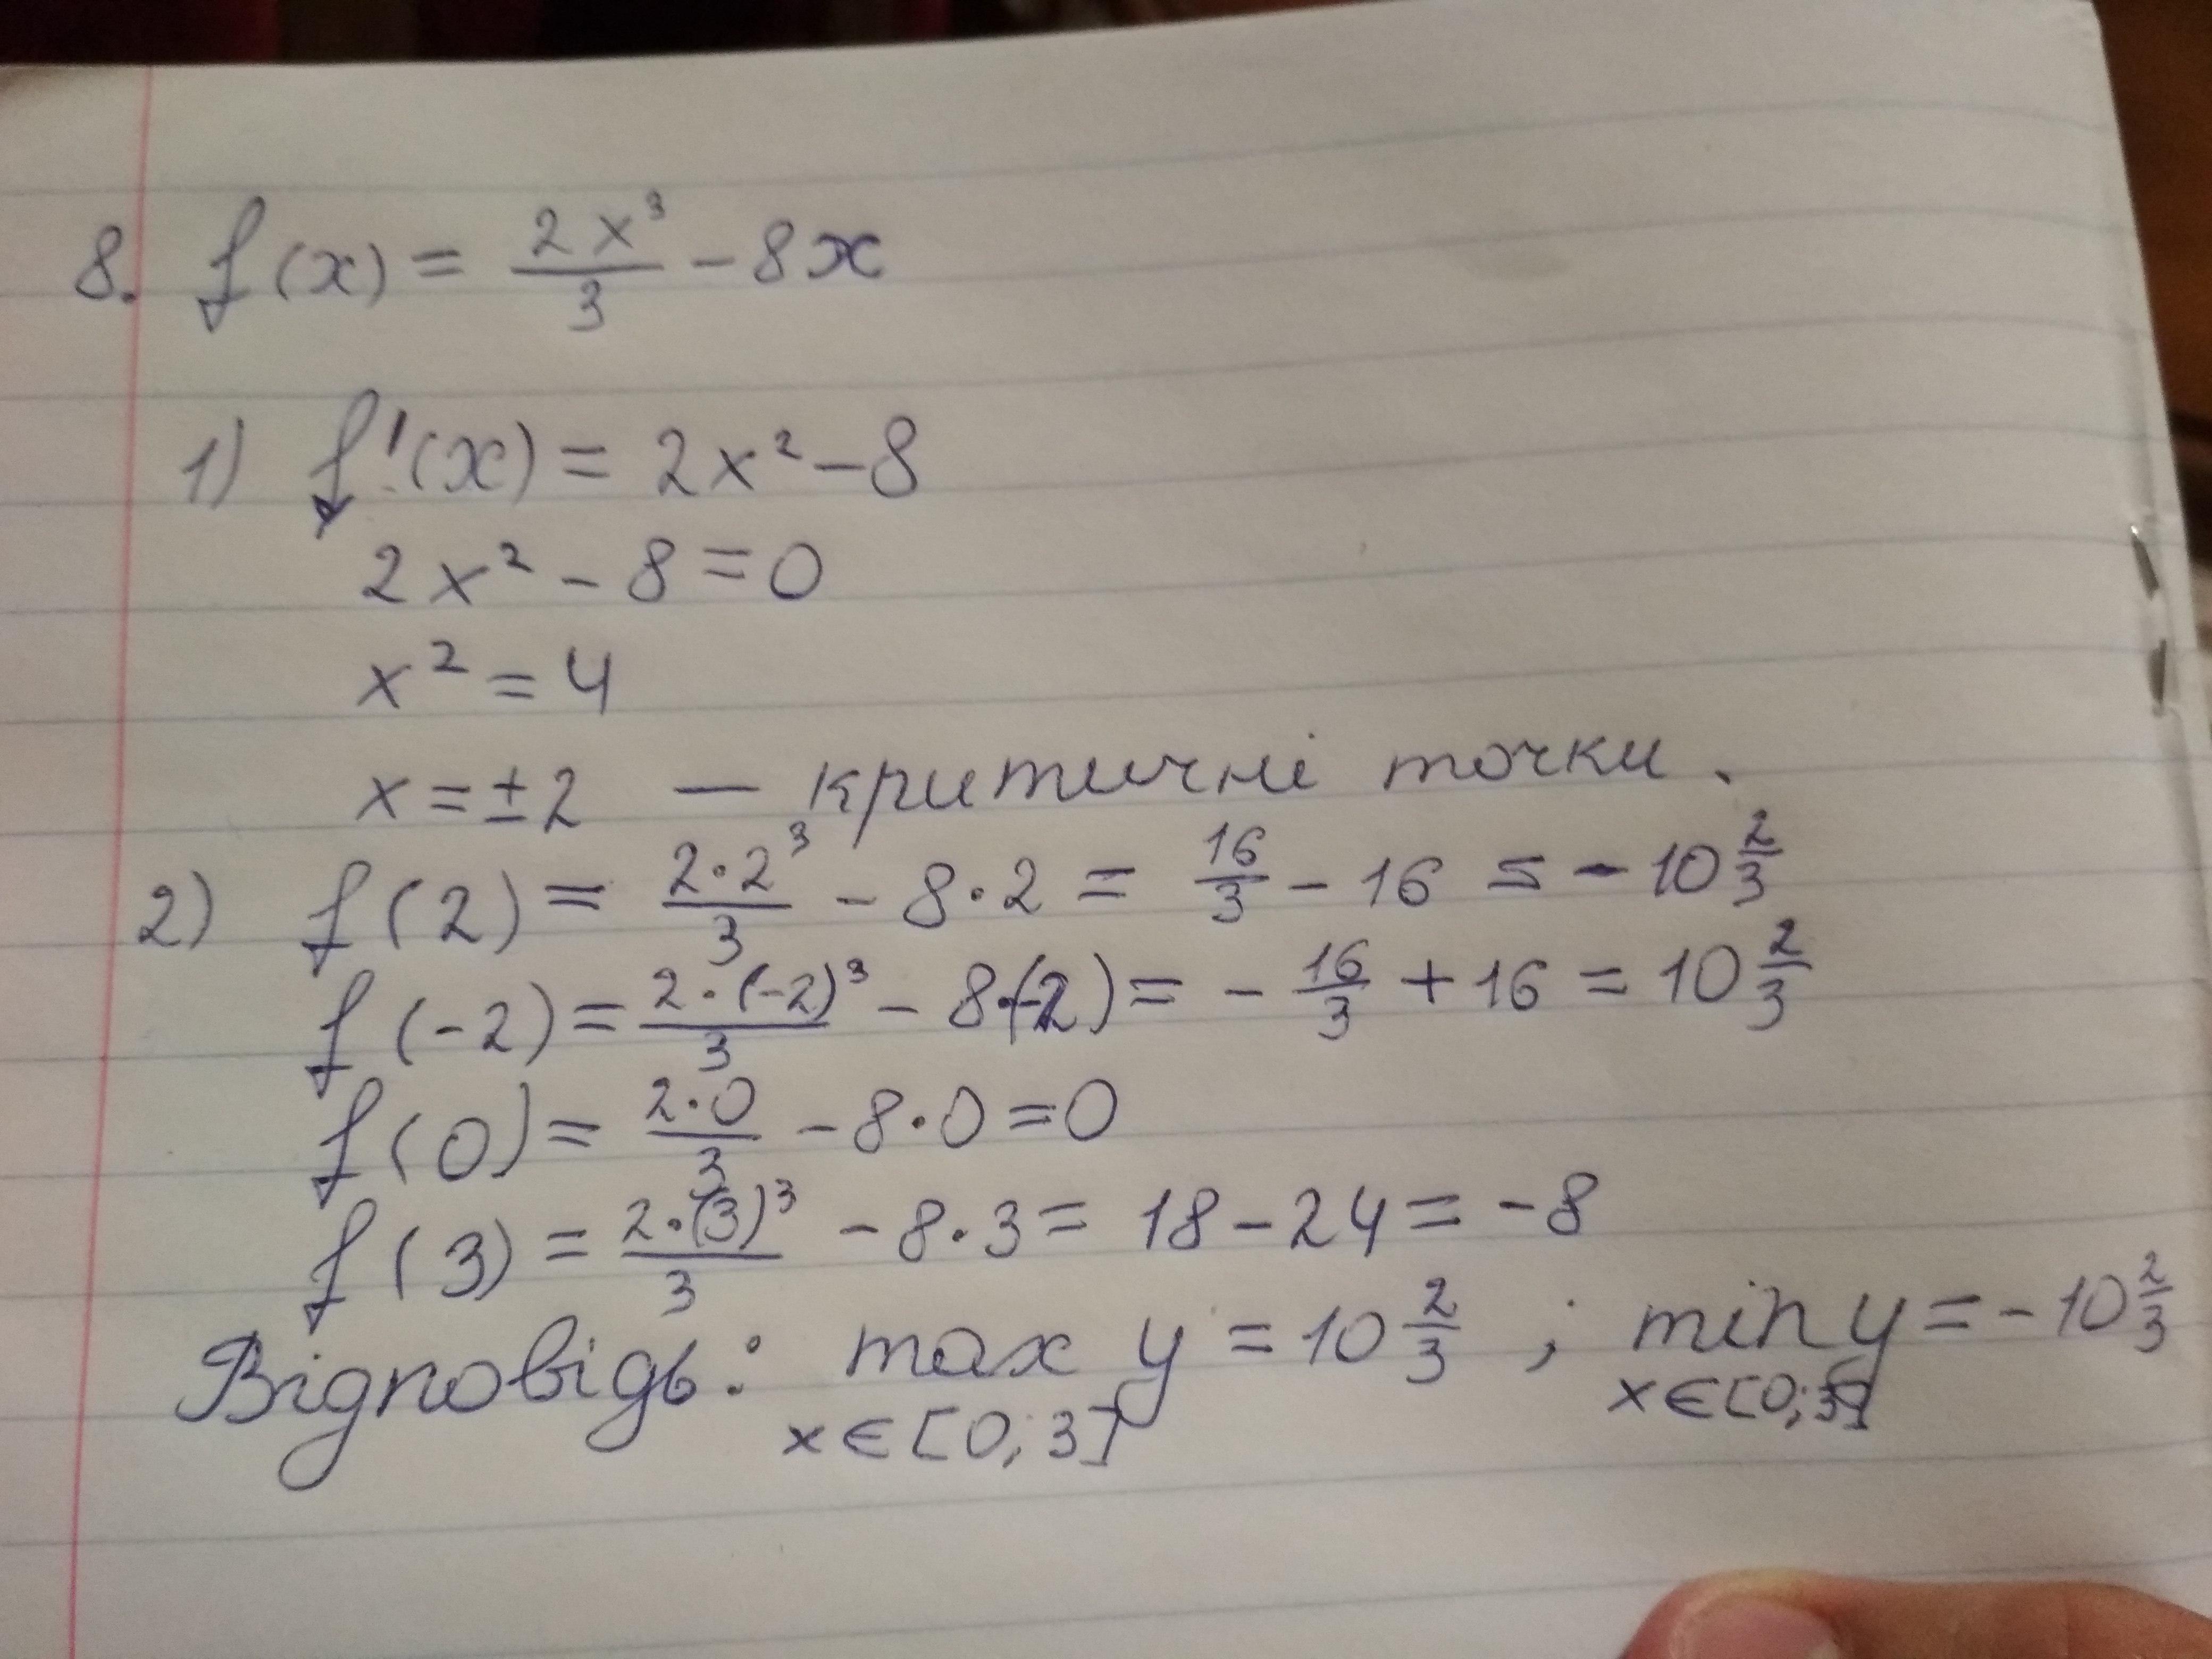 8. f(x) = 2x³/3 - 8x
1) f'(x) = 2x² - 8
2x² - 8 = 0
x² = 4
x = ±2 — критичні точки.
2) f(2) = 2·2³/3 - 8·2 = 16/3 - 16 = -10 2/3
f(-2) = 2·(-2)³/3 - 8·(-2) = - 16/3 + 16 = 10 2/3
f(0) = 2·0/3 - 8·0 = 0
f(3) = 2·(3)³/3 - 8·3 = 18 - 24 = -8
Відповідь: max y = 10 2/3 ; min y = -10 2/3
x∈[0;3] x∈[0;3]